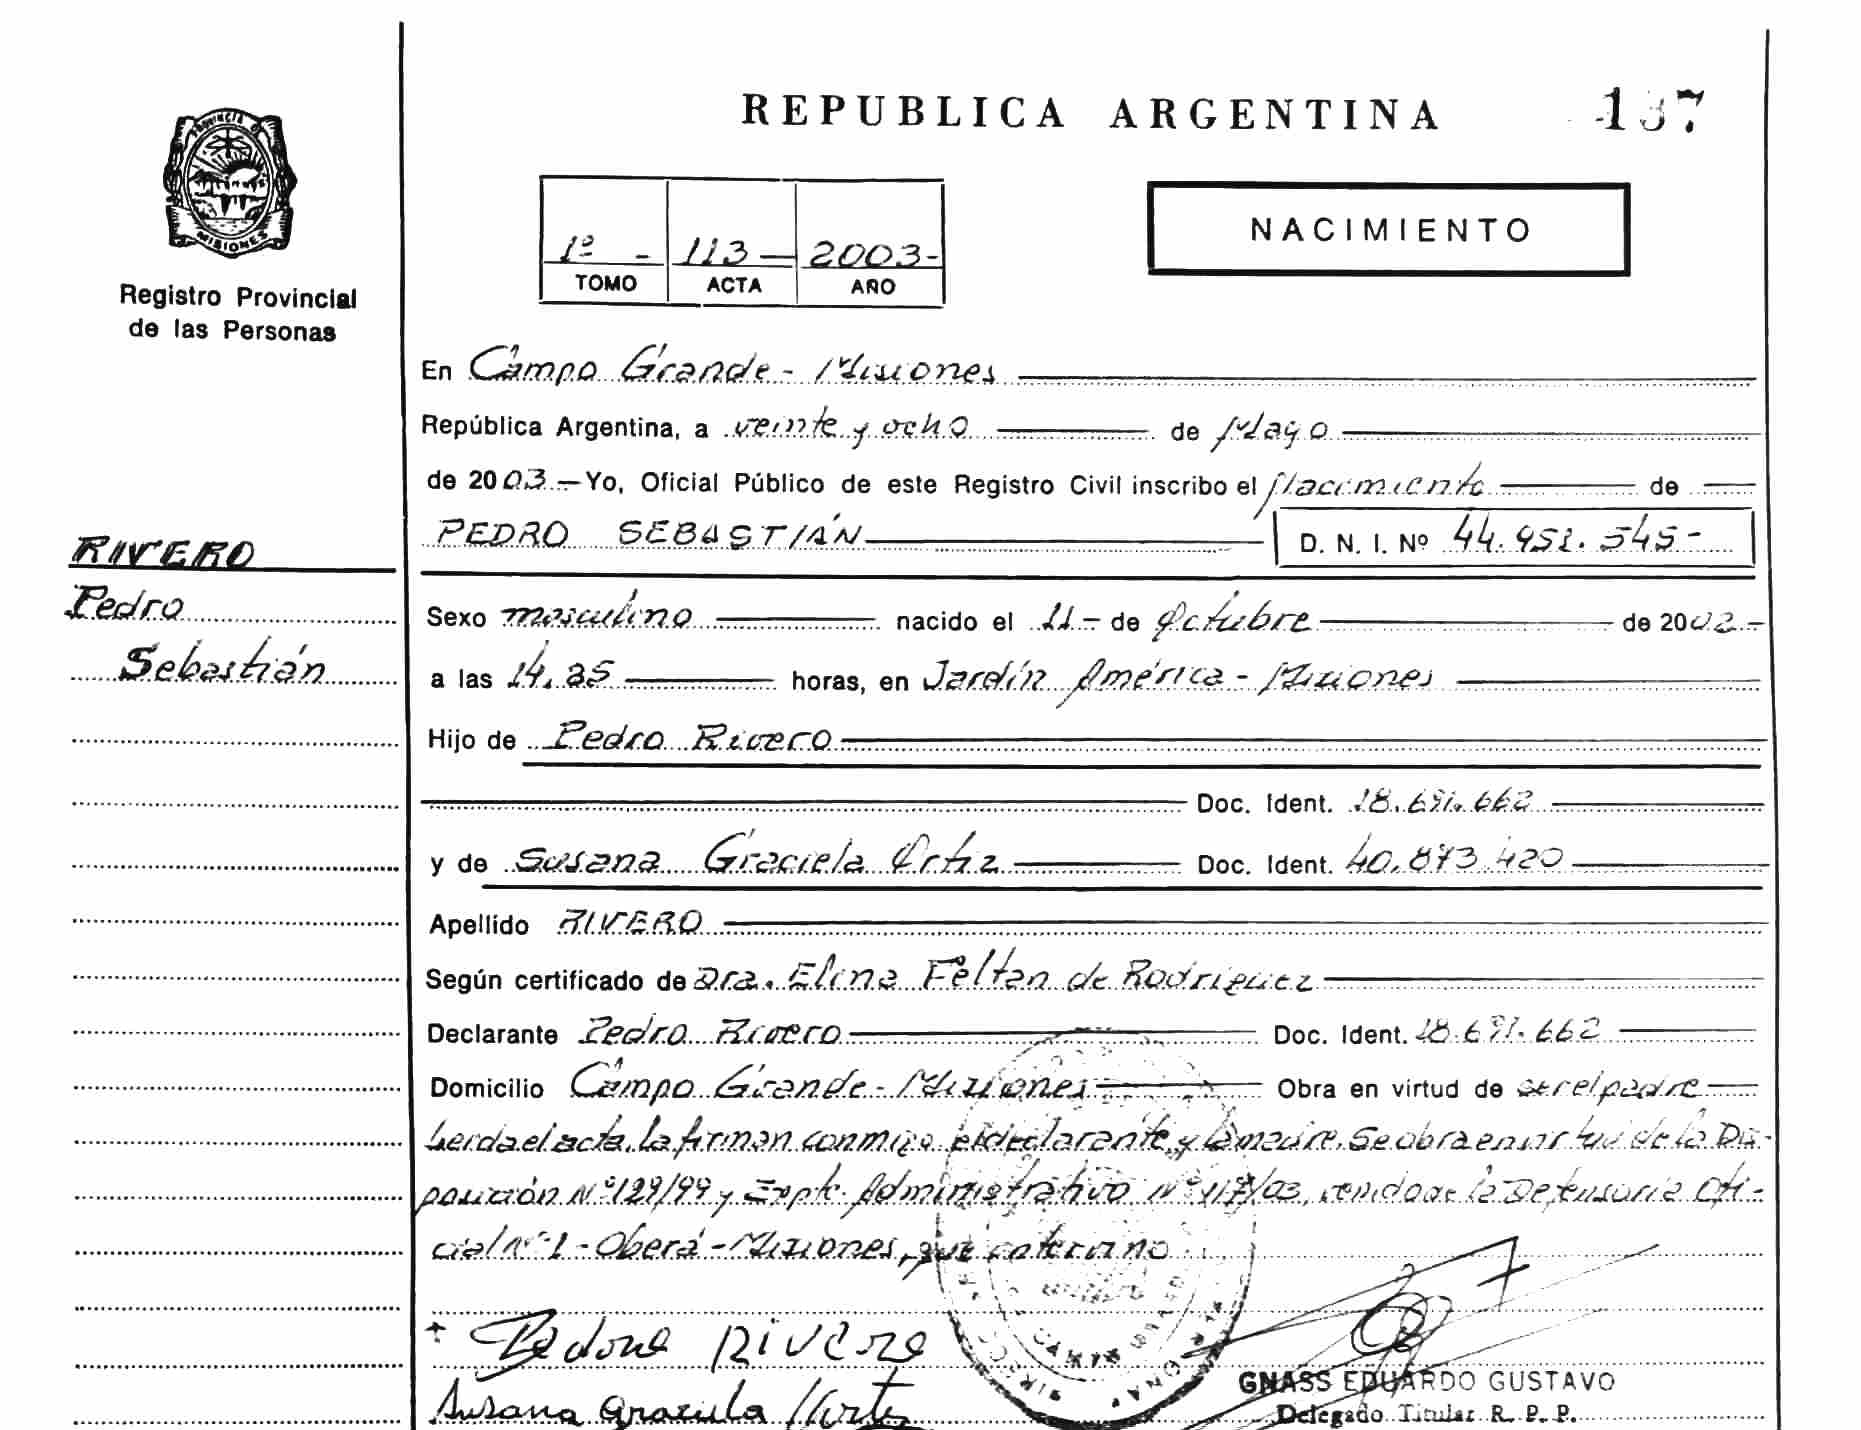 REPUBLICA ARGENTINA
PROVINCIA DE
MISIONES
Registro Provincial
de las Personas
1º - 113 - 2003-
TOMO ACTA AÑO
NACIMIENTO
En Campo Grande - Misiones
República Argentina, a veinte y ocho de Mayo
de 2003.- Yo, Oficial Público de este Registro Civil inscribo el Nacimiento de
PEDRO SEBASTIÁN D. N. I. Nº 44.951.545-
RIVERO
Pedro
Sebastián
Sexo masculino nacido el 11 - de Octubre de 2002.-
a las 14.35 horas, en Jardín América - Misiones
Hijo de Pedro Rivero
Doc. Ident. 18.691.662
y de Susana Graciela Ortiz Doc. Ident. 40.873.420
Apellido RIVERO
Según certificado de Dra. Elina Feltan de Rodriguez
Declarante Pedro Rivero Doc. Ident. 18.691.662
Domicilio Campo Grande - Misiones Obra en virtud de ser el padre
Leida el acta, la firman conmigo el declarante y la madre. Se obra en virtud de la Dis-
posición Nº 129/99 y Expte. Administrativo Nº 117/03, venido de la Defensoria Ofi-
cial Nº 1 - Oberá - Misiones, que intervino
GNASS EDUARDO GUSTAVO
Susana Graciela
Delegado Titular R. P. P.